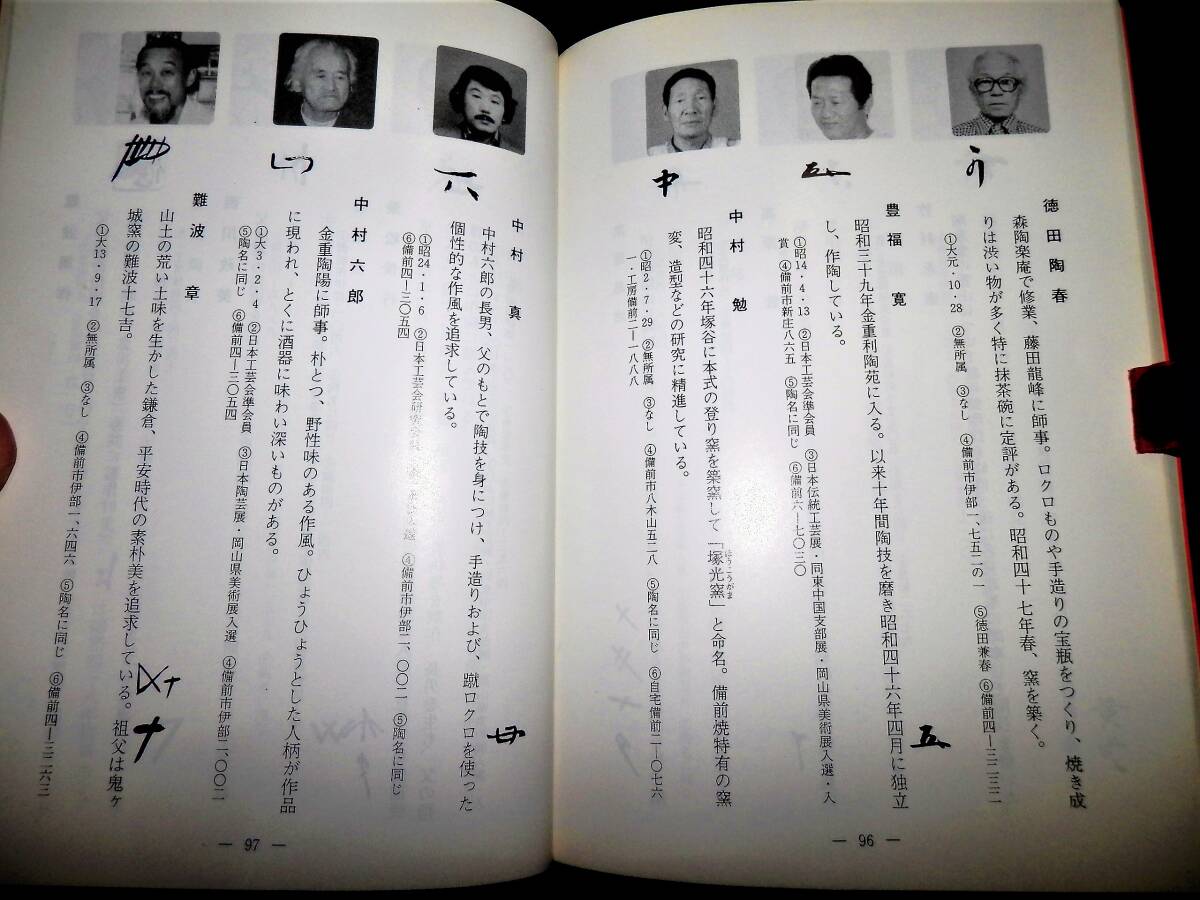 徳田陶春
森陶楽庵で修業、藤田龍峰に師事。ロクロものや手造りの宝瓶をつくり、焼き成
りは渋い物が多く特に抹茶碗に定評がある。昭和四十七年春、窯を築く。
①大元・10・28 ②無所属 ③なし ④備前市伊部一、七五二の一 ⑤徳田兼春 ⑥備前四ー三二三二
豊福寛
昭和三十九年金重利陶苑に入る。以来十年間陶技を磨き昭和四十六年四月に独立
し、作陶している。
①昭14・4・13 ②日本工芸会準会員 ③日本伝統工芸展・同東中国支部展・岡山県美術展入選・入
賞 ④備前市新庄八六五 ⑤陶名に同じ ⑥備前六ー七〇三〇
中村勉
昭和四十六年塚谷に本式の登り窯を築窯して「塚光窯」と命名。備前焼特有の窯
ほうこうがま
変、造型などの研究に精進している。
①昭2・7・29 ②無所属 ③なし ④備前市八木山五二八 ⑤陶名に同じ ⑥自宅備前二ー〇七六
一・工房備前二ー一八八八
— 96 —
中村真
中村六郎の長男、父のもとで陶技を身につけ、手造りおよび、蹴ロクロを使った
個性的な作風を追求している。
①昭24・1・6 ②日本工芸会研究会員 ④備前市伊部二、〇〇二 ⑤陶名に同じ
⑥備前四ー三〇五四
中村六郎
金重陶陽に師事。朴とつ、野性味のある作風。ひょうひょうとした人柄が作品
に現われ、とくに酒器に味わい深いものがある。
①大3・2・4 ②日本工芸会準会員 ③日本陶芸展・岡山県美術展入選 ④備前市伊部二、〇〇二
⑤陶名に同じ ⑥備前四ー三〇五四
難波章
山土の荒い土味を生かした鎌倉、平安時代の素朴美を追求している。祖父は鬼ヶ
城窯の難波十七吉。
①大13・9・17 ②無所属 ③なし ④備前市伊部一、六四六 ⑤陶名に同じ ⑥備前四ー三二六三
— 97 —